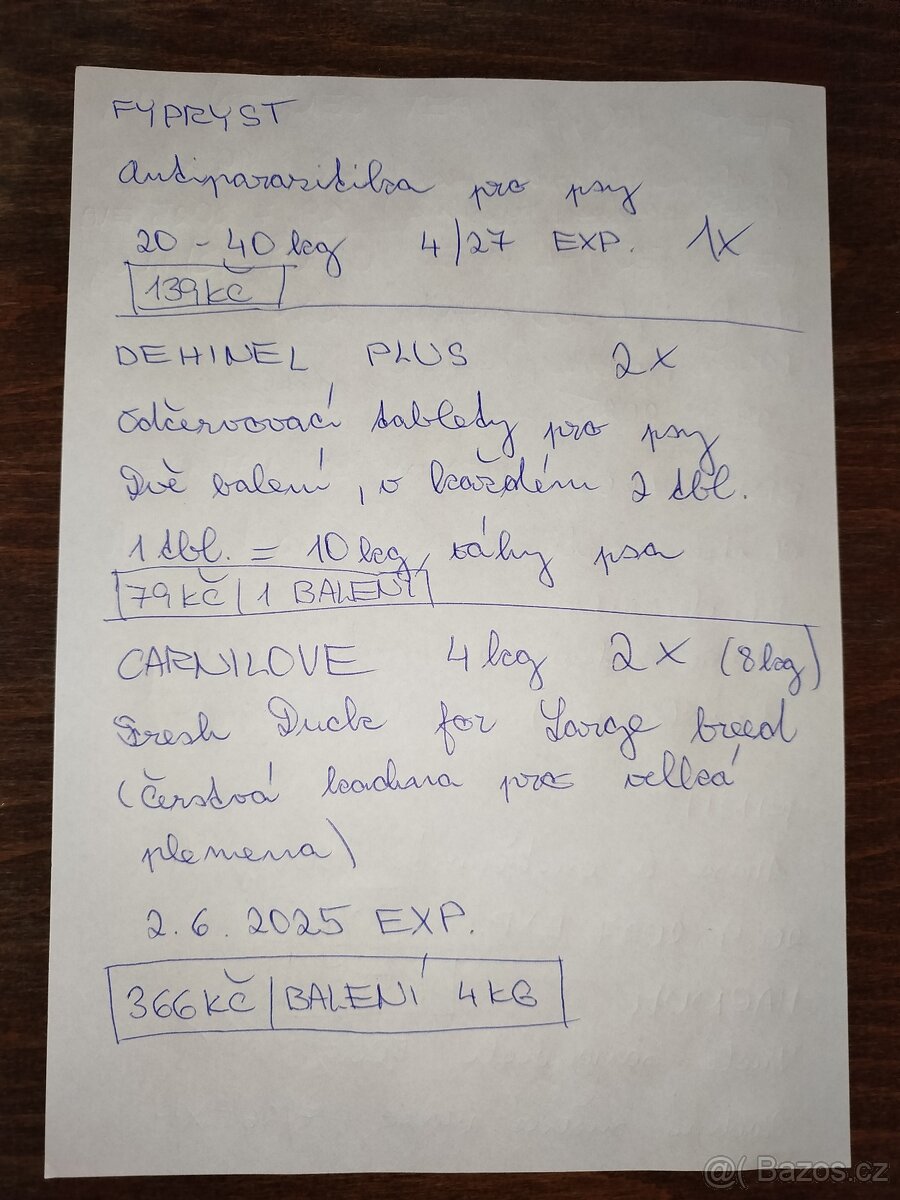 FYPRYST
Antiparazitika pro psy
20 - 40 kg 4/27 EXP. 1x
139 KČ
DEHINEL PLUS 2x
Odčervovací tablety pro psy
Dvě balení, v každém 2 tbl.
1 tbl. = 10 kg váhy psa
79 KČ | 1 BALENÍ
CARNILOVE 4 kg 2x (8kg)
Fresh Duck for Large breed
(čerstvá kachna pro velká
plemena)
2. 6. 2025 EXP.
366 KČ | BALENÍ 4 KG
@( Bazos.cz